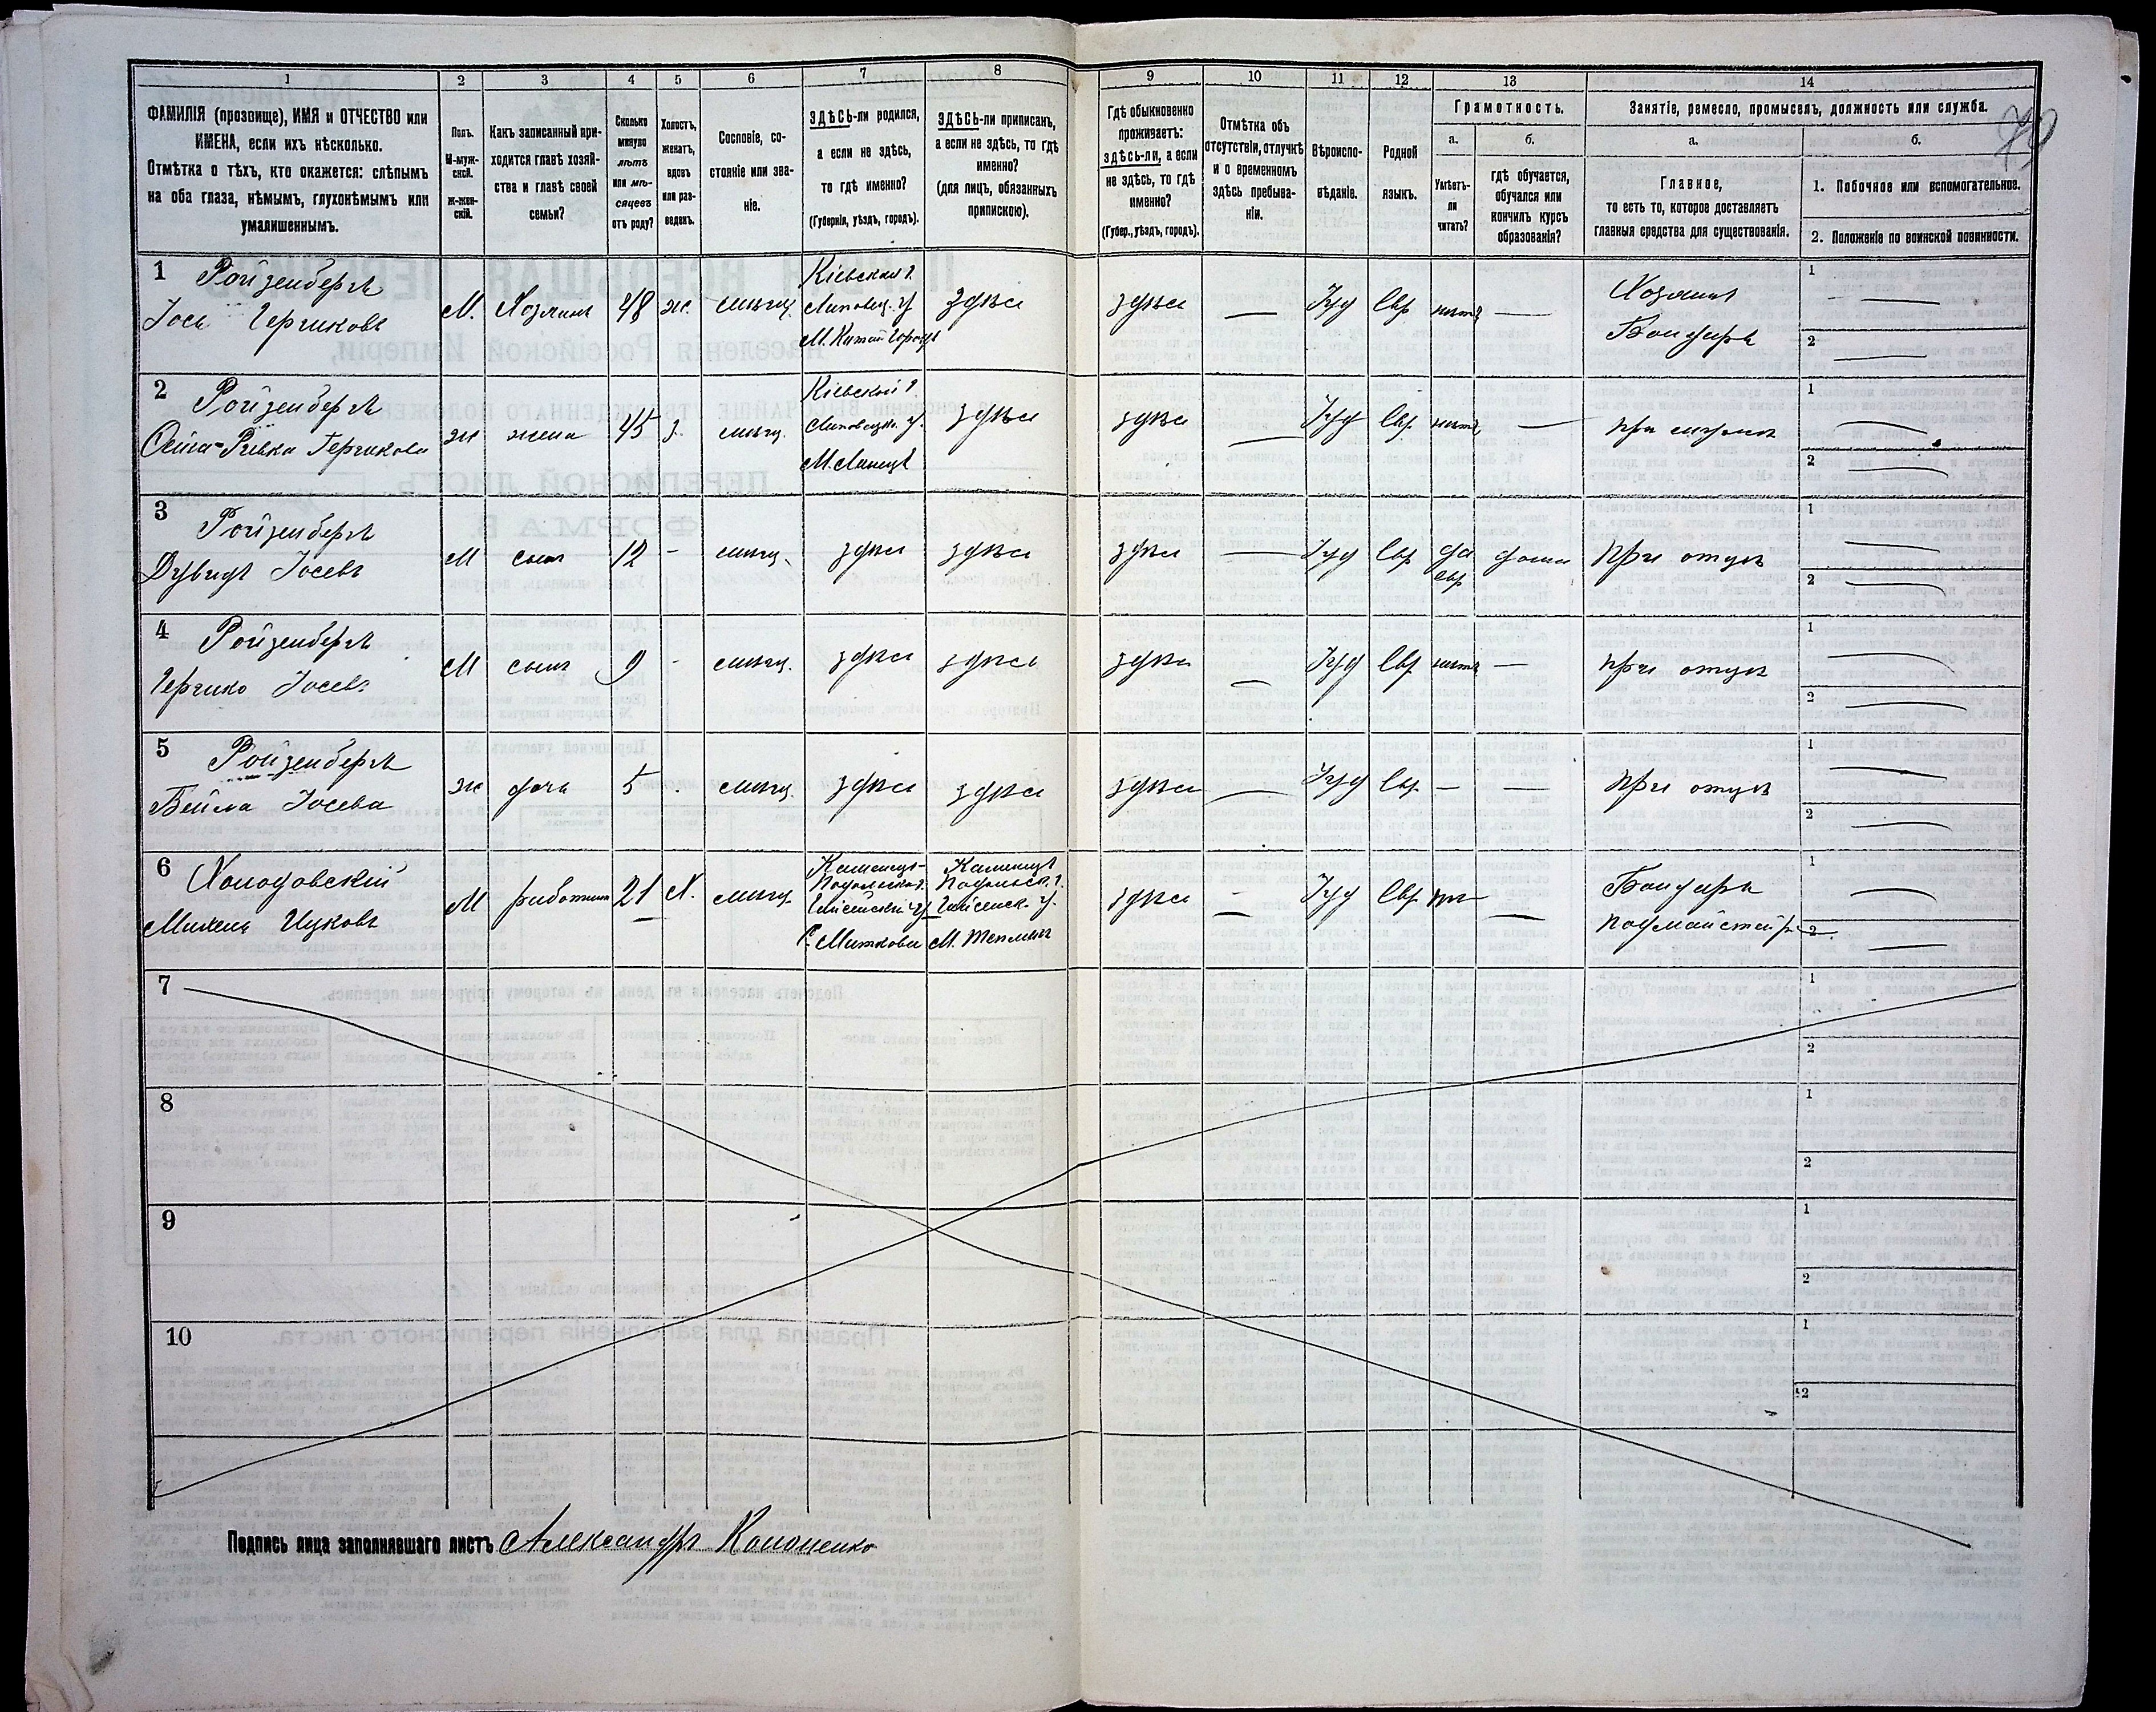 79
1
2
3
4
5
6
7
8
9
10
11
12
13
14
ФАМИЛІЯ (прозвище), ИМЯ и ОТЧЕСТВО или
ИМЕНА, если ихъ нѣсколько.
Отмѣтка о тѣхъ, кто окажется: слѣпымъ
на оба глаза, нѣмымъ, глухонѣмымъ или
умалишеннымъ.
Полъ.
М-муж-
ской.
ж-жен-
скій.
Какъ записанный при-
ходится главѣ хозяй-
ства и главѣ своей
семьи?
Сколько
минуло
лѣтъ
или мѣ-
сяцевъ
отъ роду?
Холостъ,
женатъ,
вдовъ
или раз-
веденъ.
Сословіе, со-
стояніе или зва-
ніе.
ЗДѢСЬ-ли родился,
а если не здѣсь,
то гдѣ именно?
(Губернія, уѣздъ, городъ).
ЗДѢСЬ-ли приписанъ,
а если не здѣсь, то гдѣ
именно?
(для лицъ, обязанныхъ
припискою).
Гдѣ обыкновенно
проживаетъ:
здѣсь-ли, а если
не здѣсь, то гдѣ
именно?
(Губер., уѣздъ, городъ).
Отмѣтка объ
отсутствіи, отлучкѣ
и о временномъ
здѣсь пребыва-
ніи.
Вѣроиспо-
вѣданіе.
Родной
языкъ.
Грамотность.
а.
б.
Умѣетъ-
ли
читать?
гдѣ обучается,
обучался или
кончилъ курсъ
образованія?
Занятіе, ремесло, промыселъ, должность или служба.
а.
б.
Главное,
то есть то, которое доставляетъ
главныя средства для существованія.
1. Побочное или вспомогательное.
2. Положеніе по воинской повинности.
1 Ройзенбергъ
Іось Гершковъ
М. Хозяинъ 48 ж. мѣщ.
Кіевская г.
Липовец. у
М. Китай городъ
здѣсь
здѣсь — Іуд Евр нѣтъ —
Хозяинъ
Бондаръ
1 —
2 —
2 Ройзенбергъ
Сейна-Ривка Гершкова
ж жена 45 з. мѣщ.
Кіевской г.
Липовецк. у.
М. Линецъ
здѣсь
здѣсь — Іуд Евр нѣтъ — при мужѣ
1 —
2 —
3 Ройзенбергъ
Дувидъ Іосевъ
М сынъ 12 - мѣщ. здѣсь здѣсь
здѣсь — Іуд Евр да
евр
дома при отцѣ
1 —
2 —
4 Ройзенбергъ
Гершко Іосевъ
М сынъ 9 - мѣщ. здѣсь здѣсь
здѣсь — Іуд Евр нѣтъ — при отцѣ
1 —
2 —
5 Ройзенбергъ
Бейла Іосева
ж дочь 5 . мѣщ. здѣсь здѣсь
здѣсь — Іуд Евр — — при отцѣ
1 —
2 —
6 Холодовскій
Михель Ицковъ
М работникъ 21 Х. мѣщ.
Каменецъ-
Подольская
Гайсинскъ у
С. Миткова
Каменецъ
Подольск. г.
Гайсинск. у.
М. Тепликъ
здѣсь — Іуд Евр нѣ —
Бондаръ
подмайстеръ
1 —
2 —
7
1
2
8
1
2
9
1
2
10
1
2
Подпись лица заполнявшаго листъ Александръ Кононенко